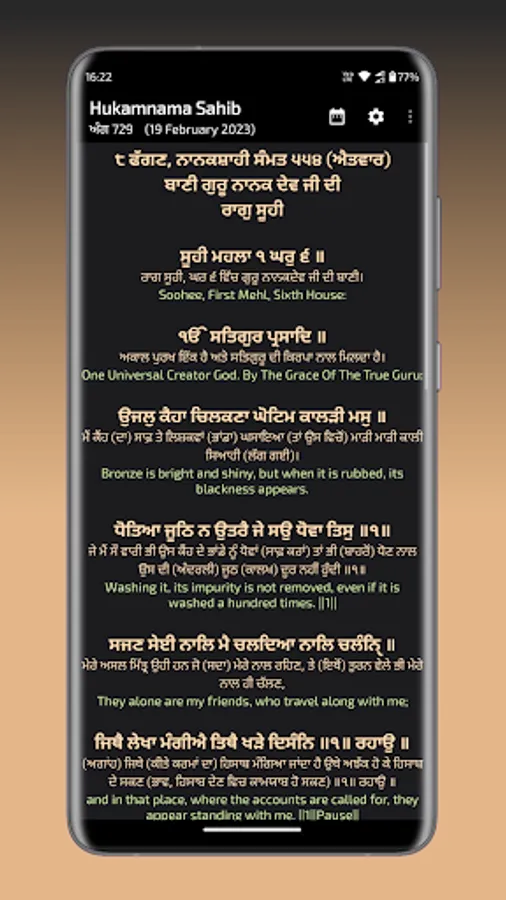 16:22
77%
Hukamnama Sahib
ਅੰਗ 729 (19 February 2023)
੮ ਫੱਗਣ, ਨਾਨਕਸ਼ਾਹੀ ਸੰਮਤ ੫੫੪ (ਐਤਵਾਰ)
ਬਾਣੀ ਗੁਰੂ ਨਾਨਕ ਦੇਵ ਜੀ ਦੀ
ਰਾਗੁ ਸੂਹੀ
ਸੂਹੀ ਮਹਲਾ ੧ ਘਰੁ ੬ ॥
ਰਾਗ ਸੂਹੀ, ਘਰ ੬ ਵਿੱਚ ਗੁਰੂ ਨਾਨਕਦੇਵ ਜੀ ਦੀ ਬਾਣੀ।
Soohee, First Mehl, Sixth House:
ੴ ਸਤਿਗੁਰ ਪ੍ਰਸਾਦਿ ॥
ਅਕਾਲ ਪੁਰਖ ਇੱਕ ਹੈ ਅਤੇ ਸਤਿਗੁਰੂ ਦੀ ਕਿਰਪਾ ਨਾਲ ਮਿਲਦਾ ਹੈ।
One Universal Creator God. By The Grace Of The True Guru:
ਉਜਲੁ ਕੈਹਾ ਚਿਲਕਣਾ ਘੋਟਿਮ ਕਾਲੜੀ ਮਸੁ ॥
ਮੈਂ ਕੈਂਹ (ਦਾ) ਸਾਫ਼ ਤੇ ਲਿਸ਼ਕਵਾਂ (ਭਾਂਡਾ) ਘਸਾਇਆ (ਤਾਂ ਉਸ ਵਿਚੋਂ) ਮਾੜੀ ਮਾੜੀ ਕਾਲੀ
ਸਿਆਹੀ (ਲੱਗ ਗਈ)।
Bronze is bright and shiny, but when it is rubbed, its
blackness appears.
ਧੋਤਿਆ ਜੂਠਿ ਨ ਉਤਰੈ ਜੇ ਸਉ ਧੋਵਾ ਤਿਸੁ ॥੧॥
ਜੇ ਮੈਂ ਸੌ ਵਾਰੀ ਭੀ ਉਸ ਕੈਂਹ ਦੇ ਭਾਂਡੇ ਨੂੰ ਧੋਵਾਂ (ਸਾਫ਼ ਕਰਾਂ) ਤਾਂ ਭੀ (ਬਾਹਰੋਂ) ਧੋਣ ਨਾਲ
ਉਸ ਦੀ (ਅੰਦਰਲੀ) ਜੂਠ (ਕਾਲਖ) ਦੂਰ ਨਹੀਂ ਹੁੰਦੀ ॥੧॥
Washing it, its impurity is not removed, even if it is
washed a hundred times. ||1||
ਸਜਣ ਸੇਈ ਨਾਲਿ ਮੈ ਚਲਦਿਆ ਨਾਲਿ ਚਲੰਨ੍ਹਿ ॥
ਮੇਰੇ ਅਸਲ ਮਿੱਤ੍ਰ ਉਹੀ ਹਨ ਜੋ (ਸਦਾ) ਮੇਰੇ ਨਾਲ ਰਹਿਣ, ਤੇ (ਇਥੋਂ) ਤੁਰਨ ਵੇਲੇ ਭੀ ਮੇਰੇ
ਨਾਲ ਹੀ ਚੱਲਣ,
They alone are my friends, who travel along with me;
ਜਿਥੈ ਲੇਖਾ ਮੰਗੀਐ ਤਿਥੈ ਖੜੇ ਦਿਸੰਨਿ ॥੧॥ ਰਹਾਉ ॥
(ਅਗਾਂਹ) ਜਿਥੇ (ਕੀਤੇ ਕਰਮਾਂ ਦਾ) ਹਿਸਾਬ ਮੰਗਿਆ ਜਾਂਦਾ ਹੈ ਉਥੇ ਅਝੱਕ ਹੋ ਕੇ ਹਿਸਾਬ
ਦੇ ਸਕਣ (ਭਾਵ, ਹਿਸਾਬ ਦੇਣ ਵਿਚ ਕਾਮਯਾਬ ਹੋ ਸਕਣ) ॥੧॥ ਰਹਾਉ ॥
and in that place, where the accounts are called for, they
appear standing with me. ||1||Pause||